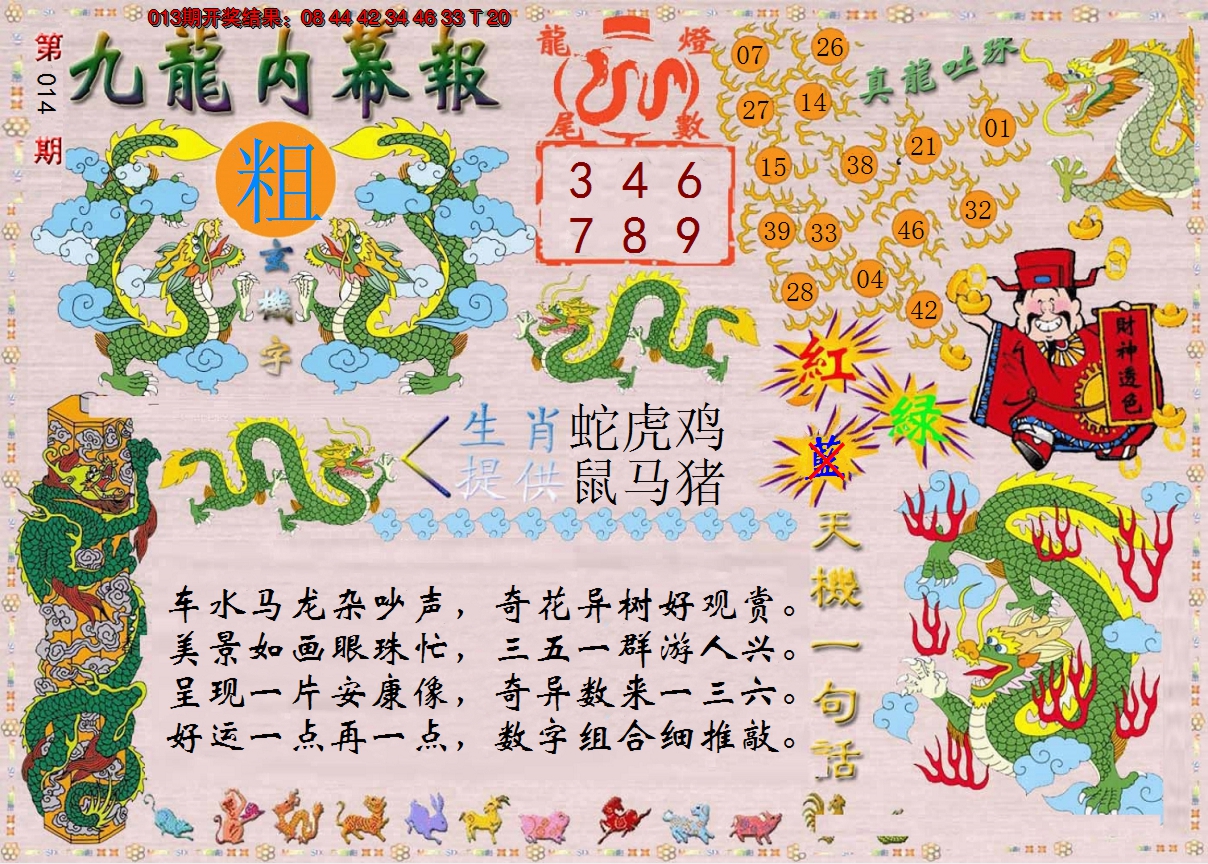 013期开奖结果：08 44 42 34 46 33 T 20
第014期
九龍内幕報
粗
玄機字
龍燈尾數
3 4 6
7 8 9
真龍吐珠
07 26
27 14
15 38 21 01
39 33 46 32
28 04 42
紅
綠
藍
財神透色
生肖提供
蛇虎鸡
鼠马猪
天機一句話
车水马龙杂吵声，奇花异树好观赏。
美景如画眼珠忙，三五一群游人兴。
呈现一片安康像，奇异数来一三六。
好运一点再一点，数字组合细推敲。